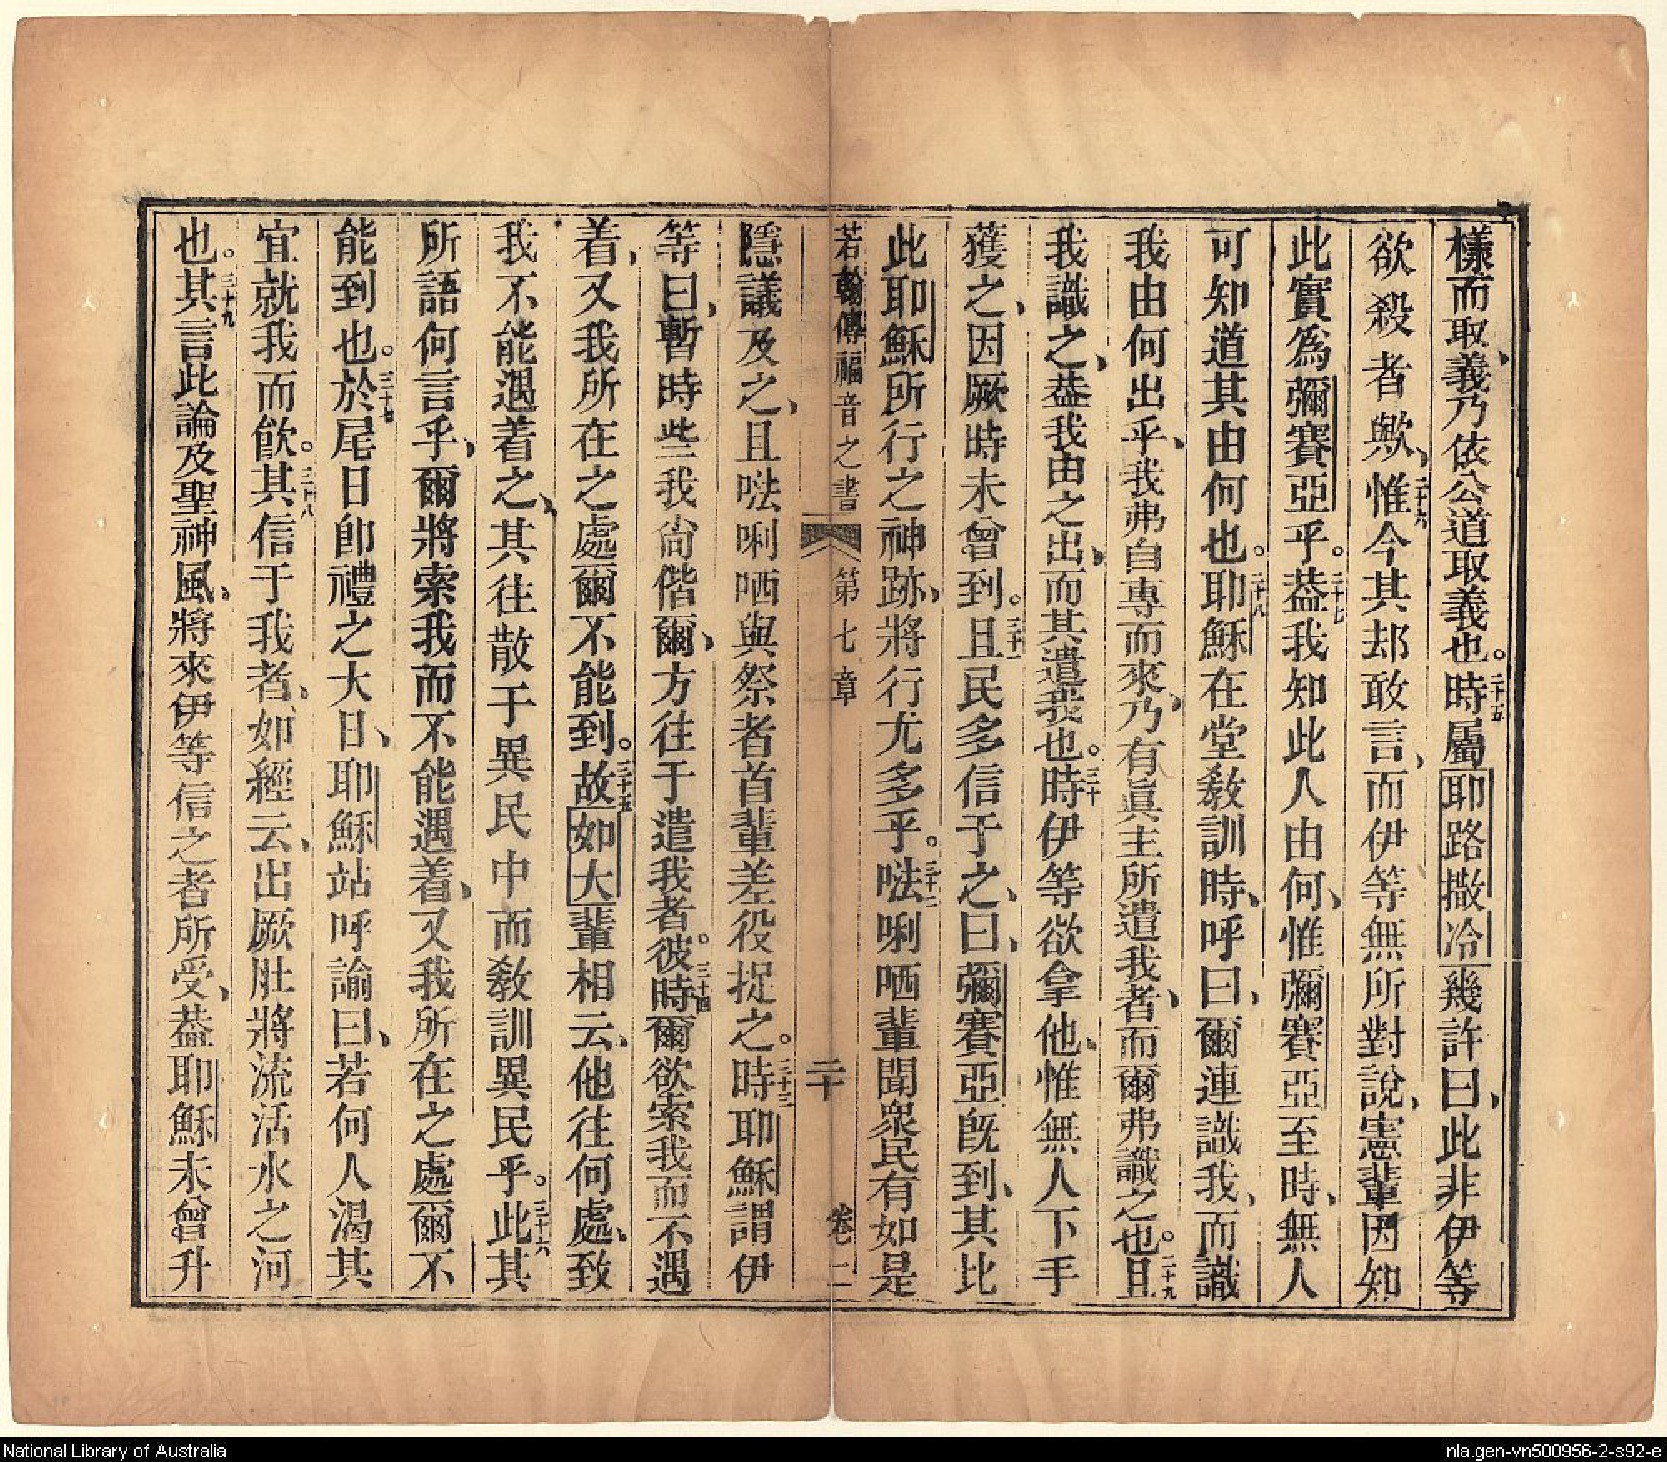 樣而取義、乃依公道取義也。二十五時屬耶路撒冷幾許曰、此非伊等
欲殺者歟、二十六惟今其却敢言、而伊等無所對說、憲輩因知
此實為彌賽亞乎。二十七葢我知此人由何、惟彌賽亞至時、無人
可知道其由何也。二十八耶穌在堂敎訓時、呼曰、爾連識我、而識
我由何出乎、我弗自專而來、乃有眞主所遣我者、而爾弗識之也。二十九且
我識之、葢我由之出、而其遣我也。三十時伊等欲拿他、惟無人下手
獲之、因厥時未曾到。三十一且民多信于之、曰、彌賽亞旣到、其比
此耶穌所行之神跡、將行尤多乎。三十二𠵽唎哂輩聞衆民有如是
若翰傳福音之書 第七章 二十 卷二
隱議及之、且𠵽唎哂與祭者首輩差役捉之。三十三時耶穌謂伊
等曰、暫時些我尙偕爾、方往于遣我者。三十四彼時爾欲索我而不遇
着、又我所在之處爾不能到。三十五故如大輩相云、他往何處、致
我不能遇着之、其往散于異民中而敎訓異民乎。三十六此其
所語何言乎、爾將索我而不能遇着、又我所在之處爾不
能到也。三十七於尾日卽禮之大日、耶穌站呼諭曰、若何人渴其
宜就我而飮。三十八其信于我者、如經云、出厥肚將流活水之河
也。三十九其言此論及聖神風、將來伊等信之者所受、葢耶穌未曾升
National Library of Australia
nla.gen-vn500956-2-s92-e